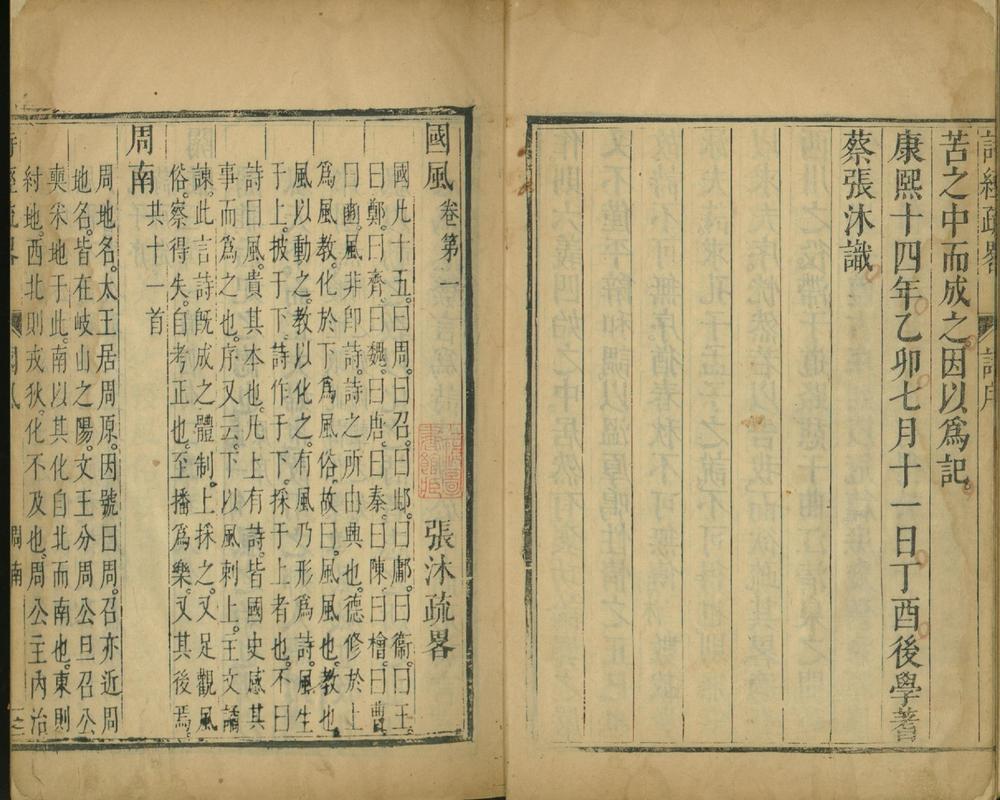 詩經疏畧 詩序
苦之中而成之因以爲記
康熙十四年乙卯七月十一日丁酉後學蓍
蔡張沐識
國風 卷第一 張沐疏畧
國凡十五曰周曰召曰邶曰鄘曰衞曰王
曰鄭曰齊曰魏曰唐曰秦曰陳曰檜曰曹
曰豳風非卽詩詩之所由興也德修於上
爲風教化於下爲風俗故曰風風也教也
風以動之教以化之有風乃形爲詩風生
于上披于下詩作于下採于上者也不曰
詩曰風貴其本也凡上有詩皆國史感其
事而爲之也序又云下以風刺上主文譎
諫此言詩旣成之體制上採之又足觀風
俗察得失自考正也至播爲樂又其後焉
周南 共十一首
周地名太王居周原因號曰周召亦近周
地名皆在岐山之陽文王分周公旦召公
奭采地于此南以其化自北而南也東則
紂地西北則戎狄化不及也周公主內治
詩經疏畧 國風 周南